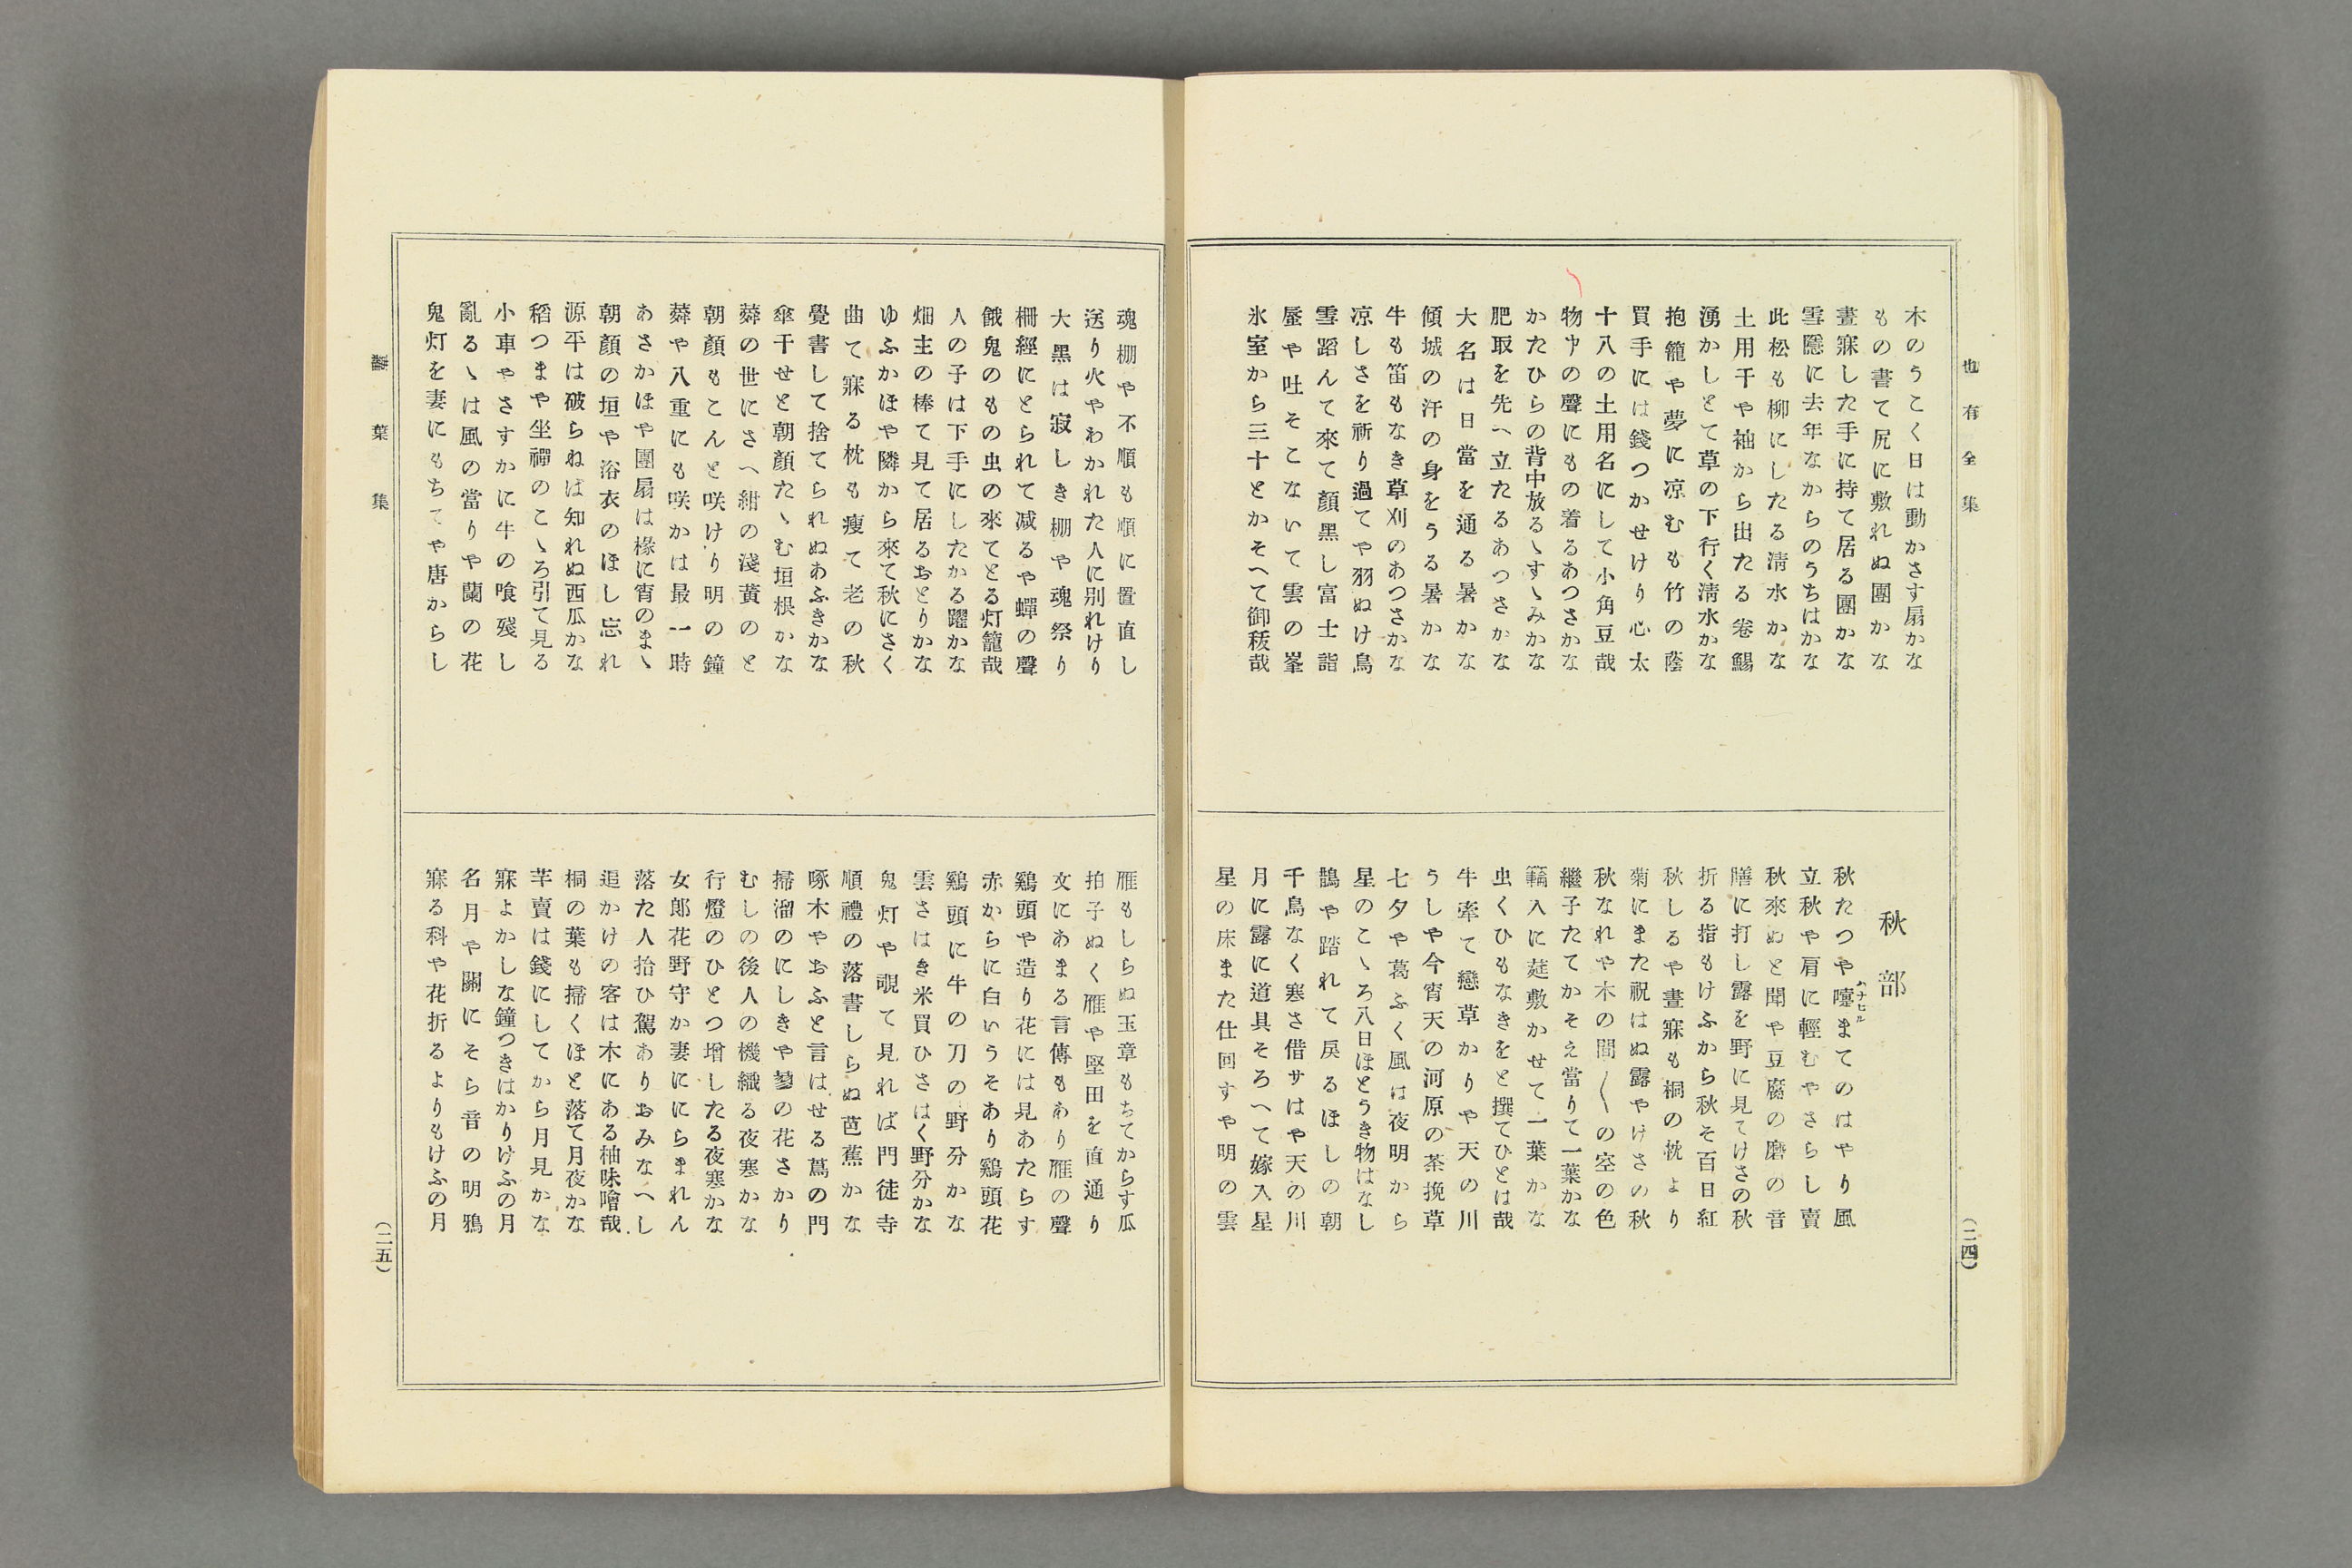 也有全集
木のうこく日は動かさす扇かな
もの書て尻に敷れぬ團かな
晝寐した手に持て居る團かな
雪隱に去年なからのうちはかな
此松も柳にしたる淸水かな
土用干や袖から出たる卷鯣
湧かしとて草の下行く淸水かな
抱籠や夢に凉むも竹の蔭
買手には錢つかせけり心太
十八の土用名にして小角豆哉
物中の聲にもの着るあつさかな
かたひらの背中放るヽすヽみかな
肥取を先へ立たるあつさかな
大名は日當を通る暑かな
傾城の汗の身をうる暑かな
牛も笛もなき草刈のあつさかな
凉しさを祈り過てや羽ぬけ鳥
雪蹈んて來て顏黑し富士詣
蜃や吐そこないて雲の峯
氷室から三十とかそへて御秡哉
秋部
秋たつや嚔まてのはやり風
ハナヒル
立秋や肩に輕むやさらし賣
秋來ぬと聞や豆腐の磨の音
膳に打し露を野に見てけさの秋
折る指もけふから秋そ百日紅
秋しるや晝寐も桐の枕より
菊にまた祝はぬ露やけさの秋
秋なれや木の間〱の空の色
繼子たてかそえ當りて一葉かな
入に莚敷かせて一葉かな
虫くひもなきをと撰てひとは哉
牛牽て戀草かりや天の川
うしや今宵天の河原の茶挽草
七夕や葛ふく風は夜明から
星のこヽろ八日ほとうき物はなし
鵲や踏れて戾るほしの朝
千鳥なく寒さ借サはや天の川
月に露に道具そろへて嫁入星
星の床また仕回すや明の雲
(二四)
魂棚や不順も順に置直し
送り火やわかれた人に別れけり
大黑は寂しき棚や魂祭り
棚經にとられて減るや蟬の聲
餓鬼のもの虫の來てとる灯籠哉
人の子は下手にしたかる躍かな
畑主の棒て見て居るおとりかな
ゆふかほや隣から來て秋にさく
曲て寐る枕も瘦て老の秋
覺書して捨てられぬあふきかな
傘干せと朝顏たヽむ垣根かな
蕣の世にさへ紺の淺黃のと
朝顏もこんと咲けり明の鐘
蕣や八重にも咲かは最一時
あさかほや團扇は椽に宵のまヽ
朝顏の垣や浴衣のほし忘れ
源平は破らねば知れぬ西瓜かな
稻つまや坐禪のこヽろ引て見る
小車やさすかに牛の喰殘し
亂るヽは風の當りや蘭の花
鬼灯を妻にもちてや唐からし
雁もしらぬ玉章もちてからす瓜
拍子ぬく雁や堅田を直通り
文にあまる言傳もあり雁の聲
鷄頭や造り花には見あたらす
赤からに白いうそあり鷄頭花
鷄頭に牛の刀の野分かな
雲さはき米買ひさはく野分かな
鬼灯や覗て見れば門徒寺
順禮の落書しらぬ芭蕉かな
啄木やおふと言はせる蔦の門
掃溜のにしきや蓼の花さかり
むしの後人の機織る夜寒かな
行燈のひとつ增したる夜寒かな
女郞花野守か妻ににらまれん
落た人拾ひ駕ありおみなへし
追かけの客は木にある柚味噌哉
桐の葉も掃くほと落て月夜かな
芋賣は錢にしてから月見かな
寐よかしな鐘つきはかりけふの月
名月や闇にそら音の明鴉
寐る科や花折るよりもけふの月
葉集
(二五)